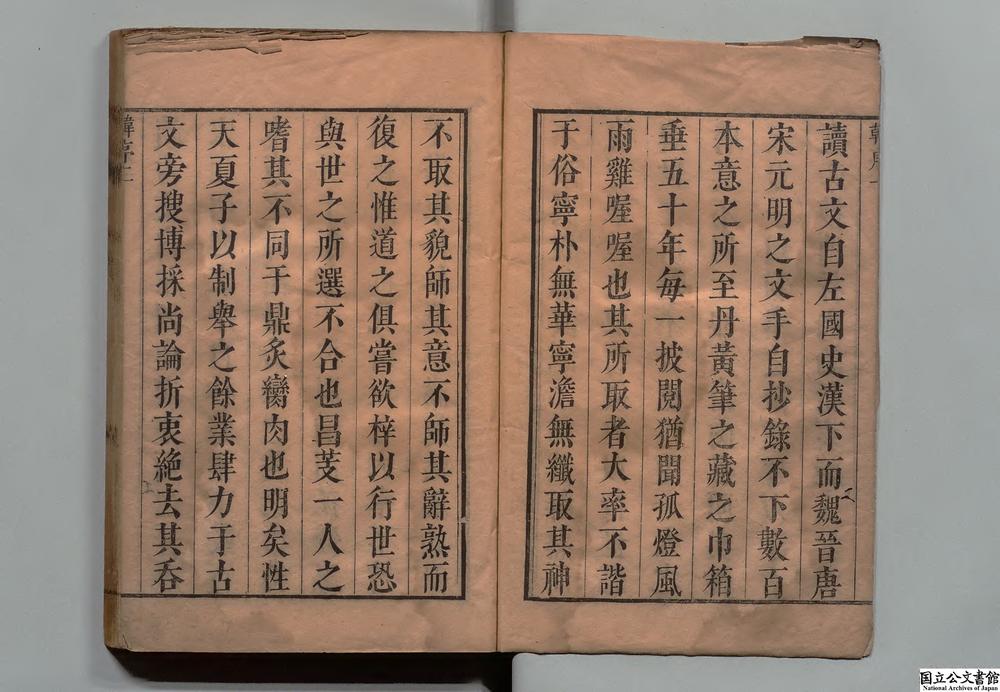 讀古文自左國史漢下而魏晉唐
宋元明之文手自抄錄不下數百
本意之所至丹黃筆之藏之巾箱
垂五十年每一披閱猶聞孤燈風
雨雞喔喔也其所取者大率不諧
于俗寧朴無華寧澹無纖取其神
不取其貌師其意不師其辭熟而
復之惟道之俱嘗欲梓以行世恐
與世之所選不合也昌芰一人之
嗜其不同于鼎炙臠肉也明矣性
天夏子以制舉之餘業肆力于古
文旁搜博採尚論折衷絕去其吞
国立公文書館
National Archives of Japan